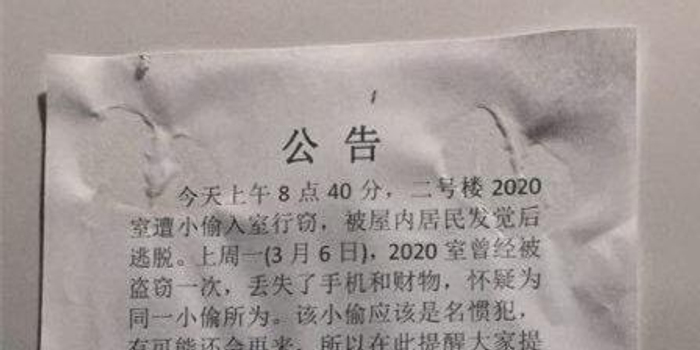 公告
今天上午8点40分，二号楼2020
室遭小偷入室行窃，被屋内居民发觉后
逃脱。上周一(3月6日)，2020室曾经被
盗窃一次，丢失了手机和财物，怀疑为
同一小偷所为。该小偷应该是名惯犯，
有可能还会再来。所以在此提醒大家提